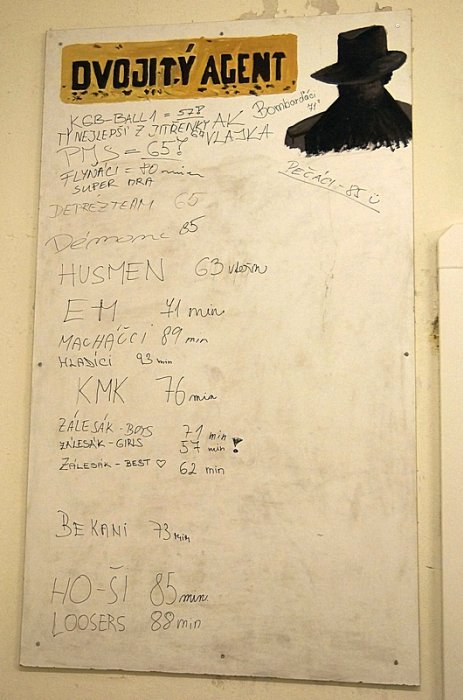 DVOJITÝ AGENT
KGB-BALL 1 = 57!
AK
Bombarďáci 71'
TÝ NEJLEPŠÍ Z JITŘENKY 64
VLAJKA
PMS = 65!
FLYŇÁCI = 70 min
SUPER HRA
PEČÁCI - 85 Ü
DETREZTEAM 65
Démoni 85
HUSMEN 63
EH 71 min
MACHÁČCI 89 min
HLADÍCI 93 min
KMK 76 min
ZÁLESÁK - BOYS 71 min
ZÁLESÁK - GIRLS 57 min !
ZÁLESÁK - BEST ♡ 62 min
BEKANI 73 min
HO-ŠI 85 min
LOOSERS 88 min